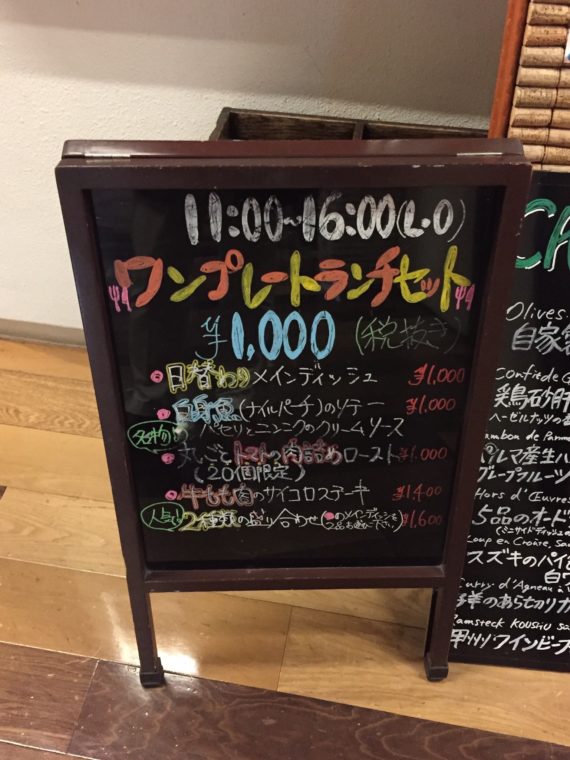 11:00〜16:00(L・O)
ワンプレートランチセット
¥1,000 (税抜き)
日替わりメインディッシュ ¥1,000
白身魚(ナイルパーチ)のソテー ¥1,000
パセリとニンニクのクリームソース
名物 丸ごとトマトの肉詰めロースト ¥1,000
(20個限定)
牛もも肉のサイコロステーキ ¥1400
人気! 2種類の盛り合わせ(●のメインディッシュを ¥1,600
2品お選び下さい)
CA
Olives
自家製
Confit de G
鶏砂肝
ヘーゼルナッツの
Jambon de Parme
パルマ産生ハ
グレープフルーツ
Hors d'Œuvres
5品のオード
(ミニサイドディッシュの
Loup en Croûte, Sau
スズキのパイ包
白ワ
Curry d'Agneau à
仔羊のあらもりカ
Ramsteck KOUSHU Sa
甲州ワインビーフ